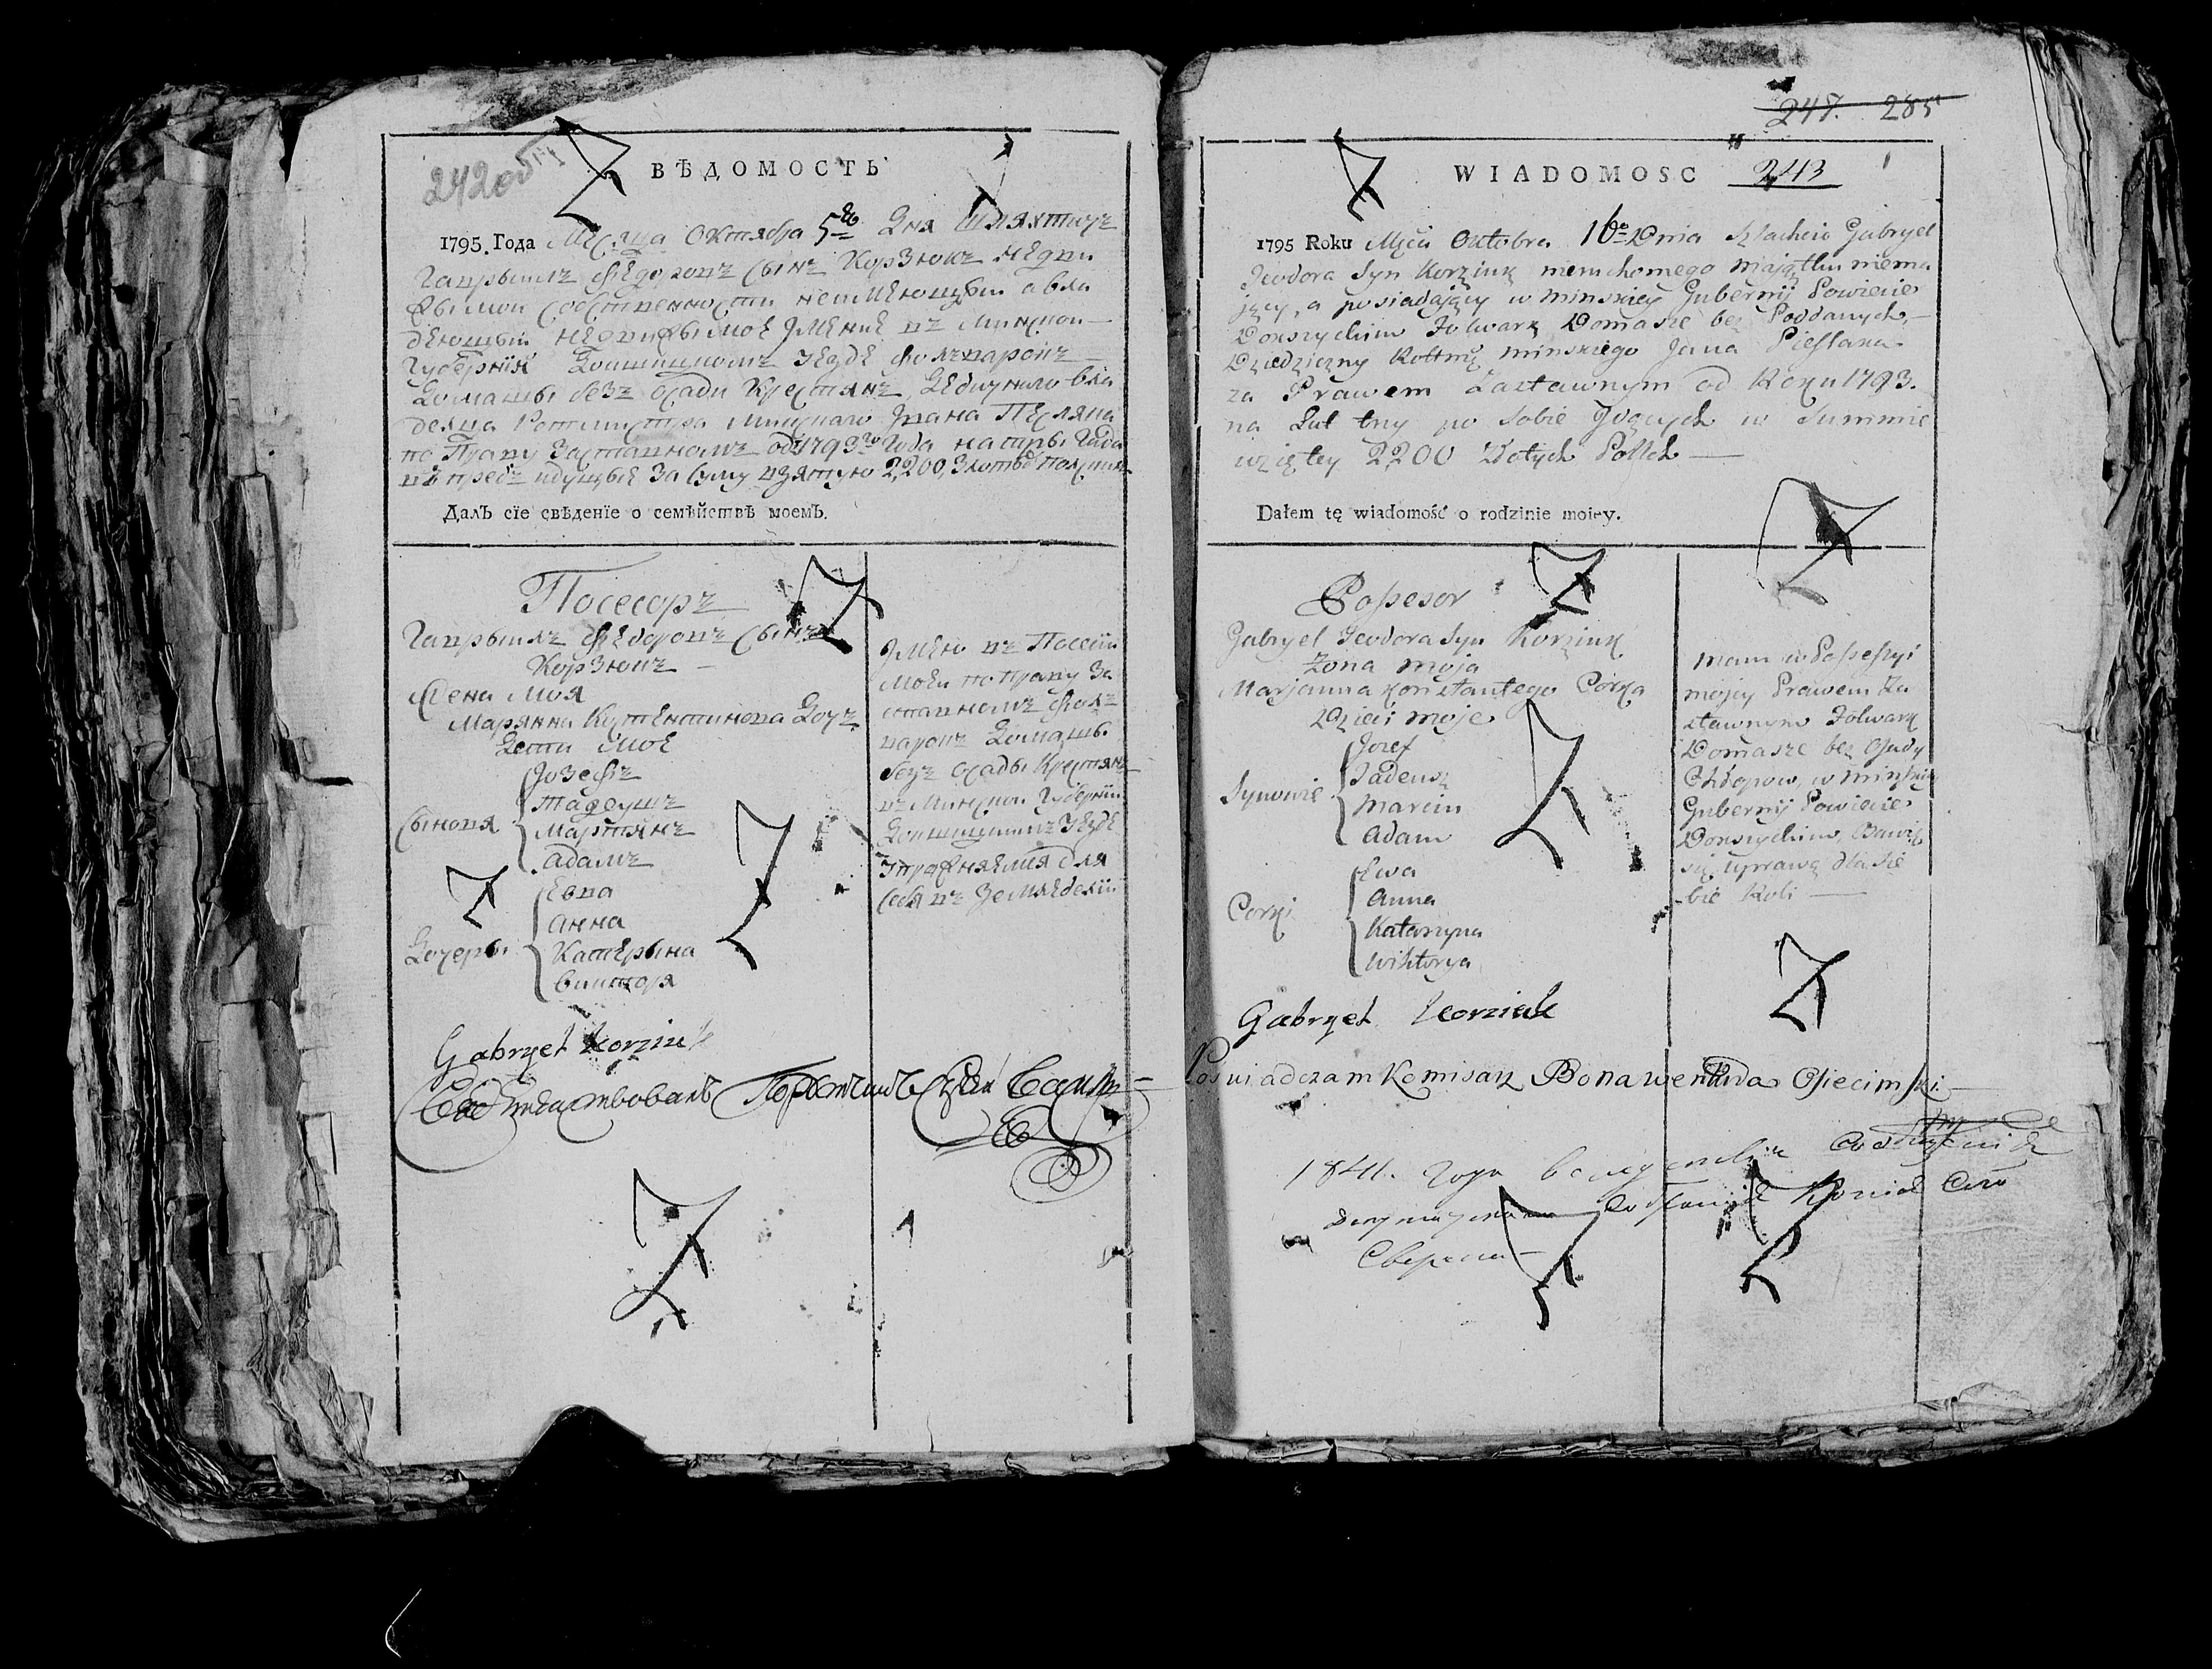 242об
ВѢДОМОСТЬ
1795. Года Месяца Октября 5го Дня Шляхтичъ
Гаврыилъ Федоровъ Сынъ Корзюкъ недви
жымой Собственности неимеющый а вла
деющый недвижымое Имение въ Минской
Губернии Докшицкомъ уезде Фольварокъ
Домашы безъ осады Крестянъ Дедичнаго вла
дельца Ротмистра Минскаго Ивана Песляка
по Праву Заставномъ од 1793го Года на тры Года
въ предъ идущые За Сумму взятую 2,200, Злотыхъ Польскихъ
ДалЪ сїе свѣденїе о семѣйствѣ моемЪ.
Посесоръ
Гаврыилъ Федоровъ Сынъ
Корзюкъ
Жена Моя
Марянна Костентинова Дочъ
Дети Мое
Сыновя
Іозефъ
Тадеушъ
Мартянъ
Адамъ
Дочеры
Евва
Анна
Катерына
Викторя
Имею въ Посесіи
Моей по Праву За
ставномъ Фоль
варокъ Домашы
безъ осады Крестянъ
въ Минской Губерніи
Докшицкимъ Уезде
Упражняемся для
Себя въ Земледеліи
Gabryel Korziuk
Свидѣтельствовалъ
247. 285
WIADOMOSC 243
1795 Roku Mjca Oktobra 16go Dnia Szlachcic Gabryel
Teodora Syn Korziuk nieruchomego Majątku niema
jący, a posiadający w Minskiey Gubernij Powiecie
Dokszyckim Folwark Domasze bez Poddanych
Dziedziczny Rottmą Minskiego Jana Pieslaka
za Prawem Zastawnym od Roku 1793.
na Lat try po Sobie Idących w Summie
wziętey 2200 Złotych Polsch
Dałem tę wiadomość o rodzinie moiey.
Possesor
Gabryel Teodora Syn Korziuk
Żona moja
Marjanna Konstantego Corka
Dzieci moje
Synowie
Jozef
Tadeusz
Marcin
Adam
Corki
Ewa
Anna
Katarzyna
Wiktorya
Mam w Possessyi
mojey Prawem Za
stawnym Folwark
Domasze bez Osady
Chłopow, w Minskiey
Gubernij Powiecie
Dokszyckim, Bawię
się uprawą dla sie
bie Roli
Gabryel Korziuk
Poswiadczam Komisarz Bonawentura Osiecimski
1841. года
Сверена